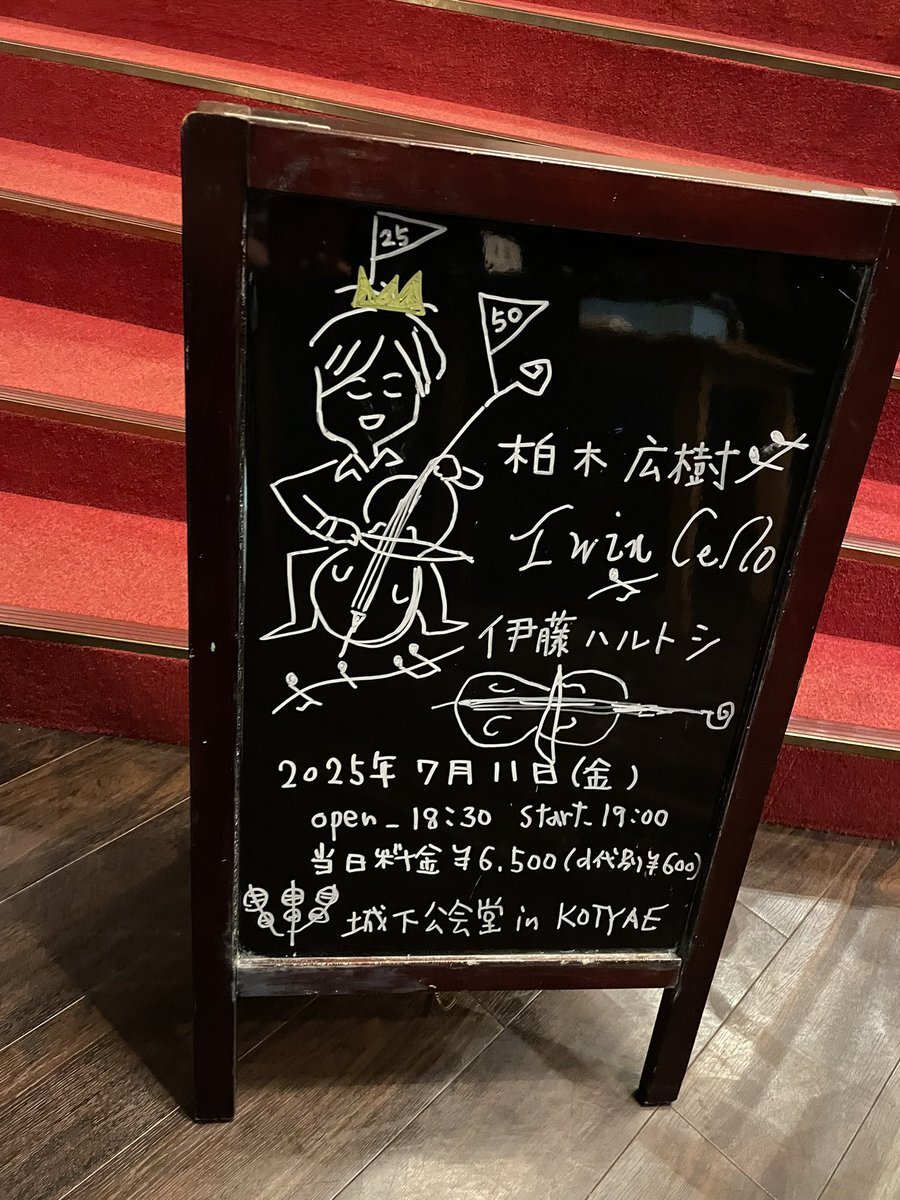 25
50
柏木広樹
Twin Cello
伊藤ハルトシ
2025年7月11日(金)
open_18:30 start_19:00
当日料金¥6,500(d代別¥600)
城下公会堂 in KOTYAE